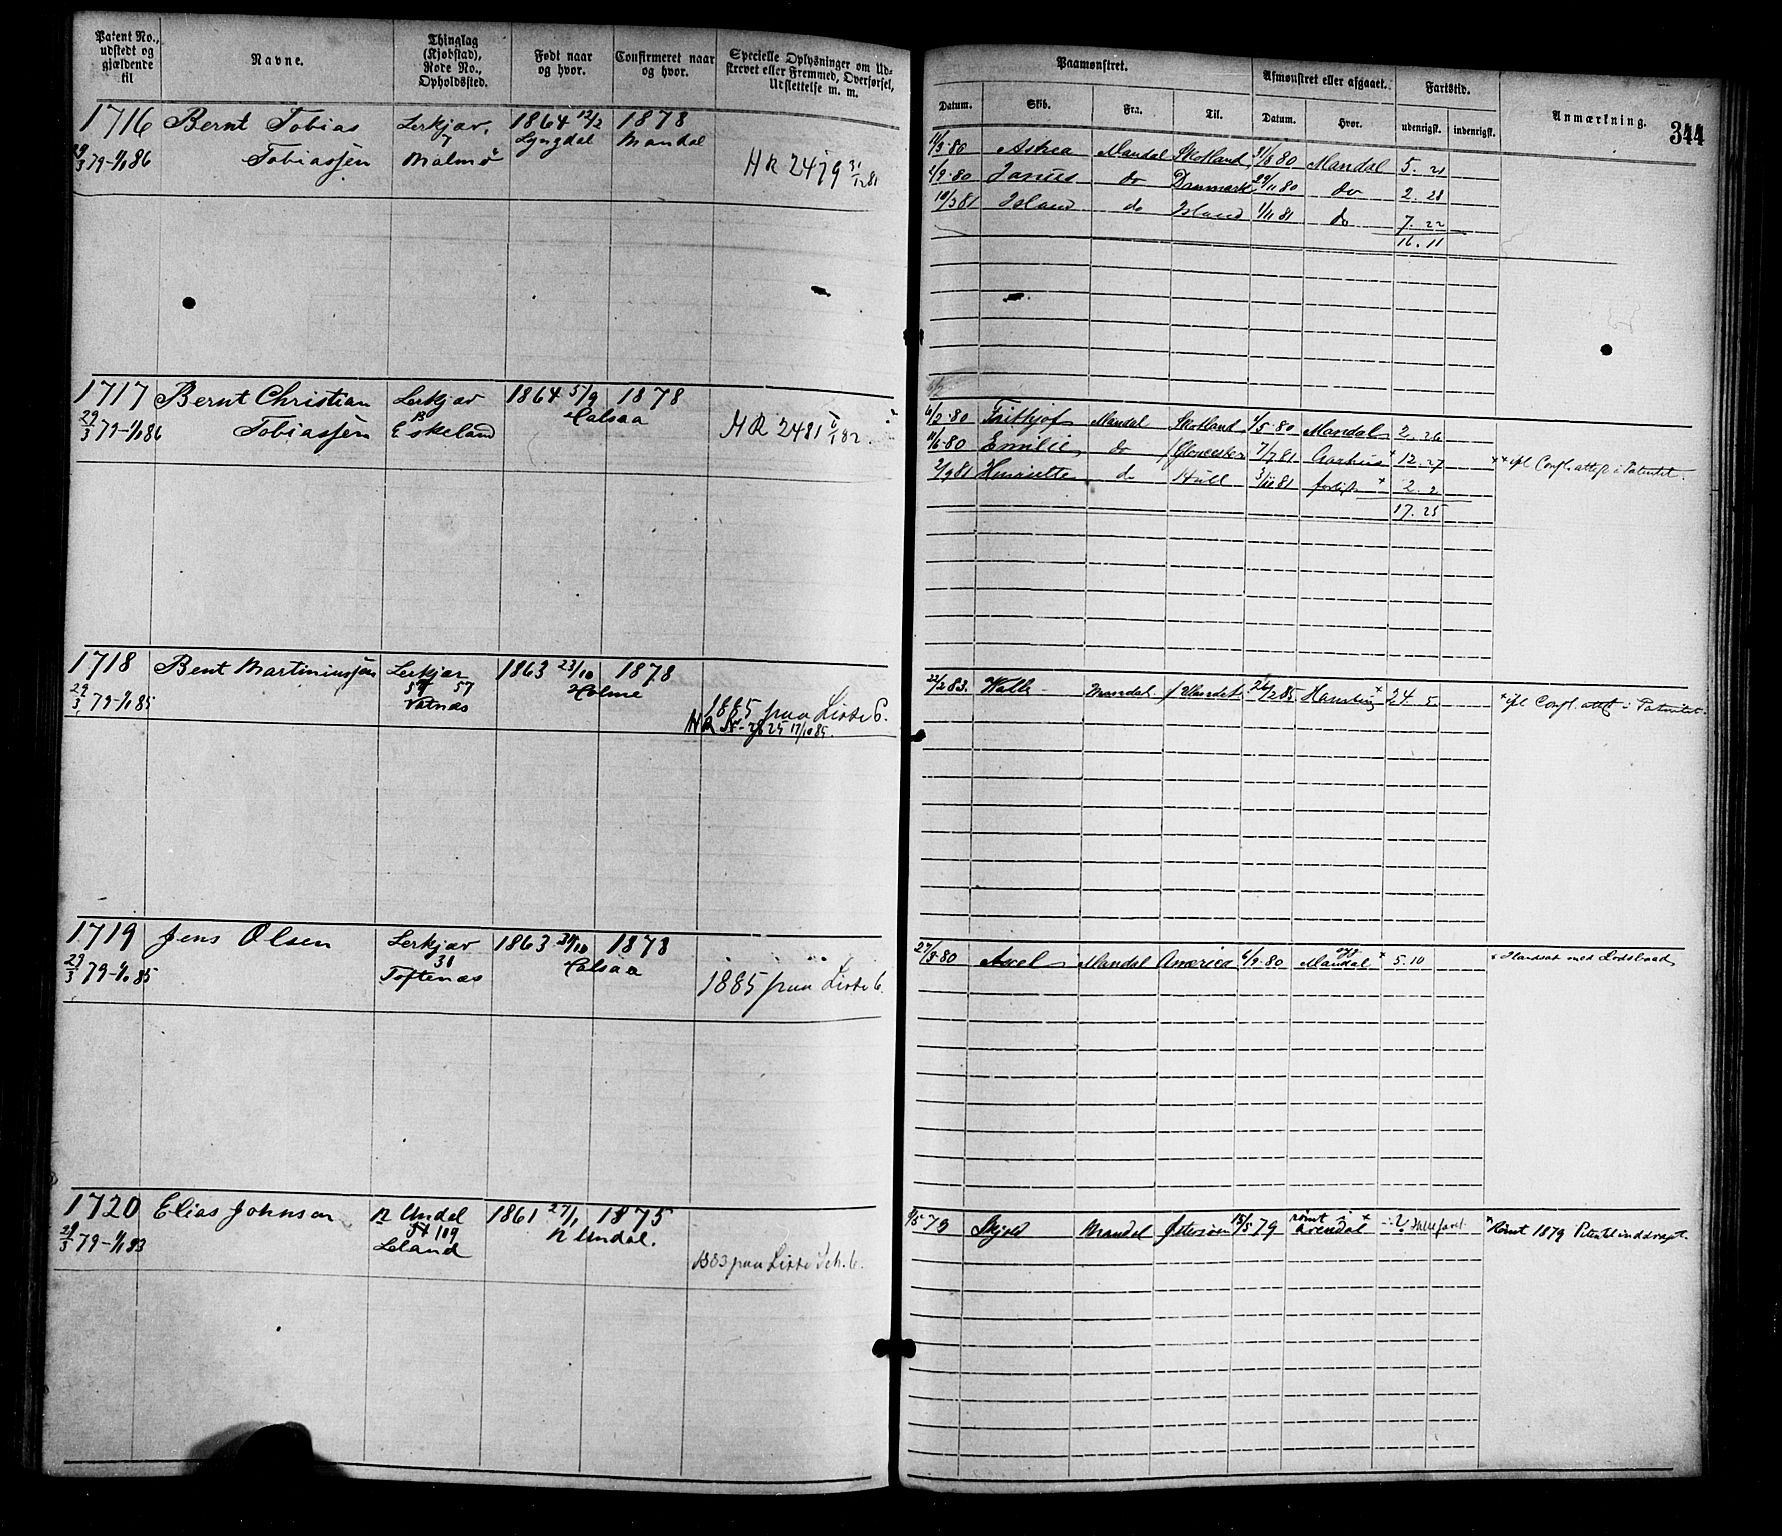 Patent No., udstedt og gjældende til
Navne.
Thinglag (Kjøbstad), Rode No., Opholdssted.
Født naar og hvor.
Confirmeret naar og hvor.
Specielle Oplysninger om Udskrevet eller Fremmed, Overførsel, Udslettelse m. m.
Paamønstret.
Afmønstret eller afgaaet.
Fartstid.
Anmærkning.
344
Datum. Skib. Fra. Til. Datum. Hvor. udenrigsk. indenrigsk.
1716 Bernt Tobias Lerkjær, 1864 12/2 1878
79-1/1 86 Tobiassen 7 Malmö Lyngdal Mandal HR 2479 31/12 81
11/3 80 Astrea Mandal Skotland 31/8 80 Mandal 5. 21
1/9 80 Janus do Danmark 29/11 80 do 2. 28
10/3 81 Island do Island 1/11 81 do 7. 22
16. 11
1717 Bernt Christian Lerkjær 1864 5/9 1878
29/3 79-1/1 86 Tobiassen Eskeland Halsaa HR 2481
6/2 80 Frithjof Mandal Skotland 1/5 80 Mandal 2. 26
11/6 80 Emilie do Gloucester 7/7 81 Aarhus + 12. 27
2/9 81 Henriette do Hull 3/11 81 forlist + 2. 2
17. 25
++ ifl Confl. attest i Patentet.
1718 Bent Martiniussen Lerkjær 1863 23/10 1878
29/3 79-1/1 85 57 Vatnæs Holme
1885 paa Liste 6.
HR Nr 2625 17/10 85
22/2 83. Valle Mandal 26/2 85 + 24 5
+ ifl Confl. attest i Patentet.
1719 Jens Olsen Lerkjær 1863 29/10 1878
29/3 79-1/1 85 31 Toftenæs Halsaa
1885 paa Liste 6.
27/3 80 Axel Mandal America 6/9 80 Mandal + 5. 10
+ Ilandsat med Lodsbaad
1720 Elias Johnsen N Undal 1861 27/1 1875
29/3 79-1/1 83 109 Leland N Undal.
1883 paa Liste Sch. 6.
Skjold Mandal Østersøen 15/5 79 rømt i Arendal +
+ Rømt 1879 Patentet inddraget.